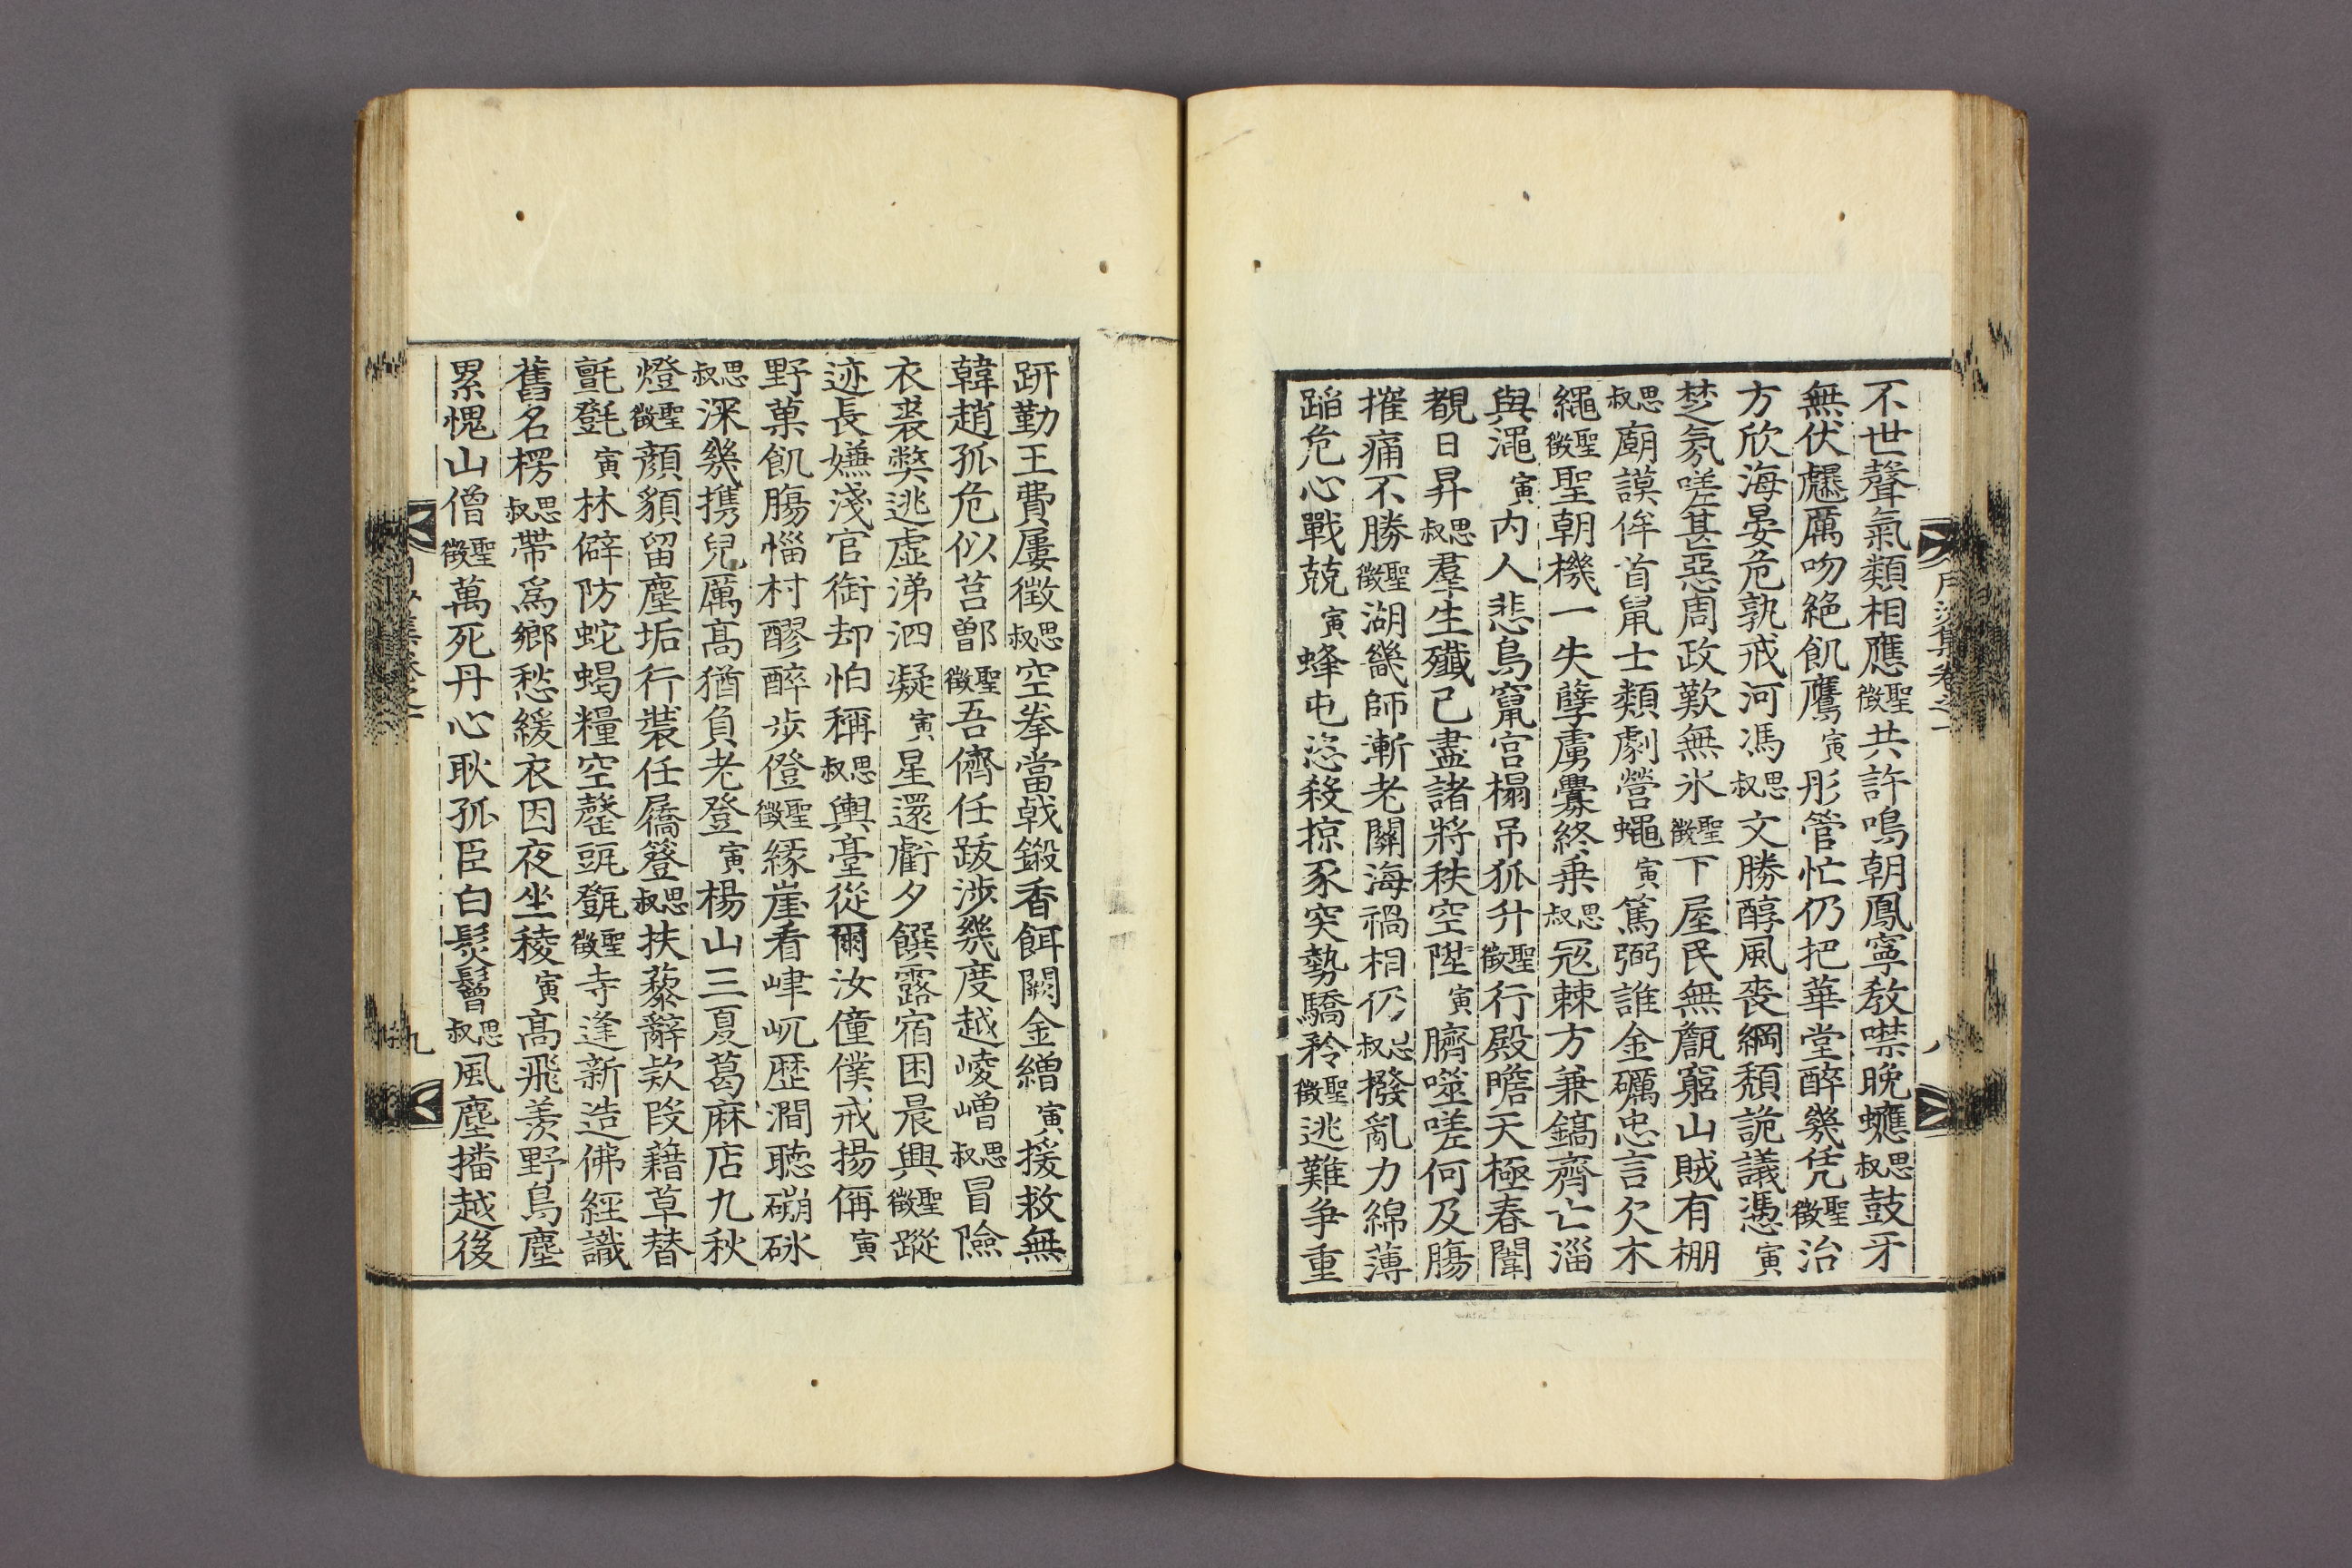 不世聲氣類相應聖徵共許鳴朝鳳寧教噤晚蠯思叔鼓牙
無伏虺厲吻絶飢鷹寅彤管忙仍把華堂醉幾凭聖徵治
方欣海晏危孰戒河馮思叔文勝醇風喪綱頹詭議憑寅
棼氛嗟甚惡周政歎無氷聖徵下屋民無甔窮山賊有棚
思叔廟謨侔首鼠士類劇營蠅寅篤弼誰金礪忠言欠木
繩聖徵聖朝機一失孽虜釁終乗思叔冦棘方兼鎬齊亡淄
與澠寅内人悲鳥竄宫榻吊狐升聖徵行殿瞻天極春闈
覩日昇思叔羣生殲已盡諸將秩空陞寅臍噬嗟何及膓
摧痛不勝聖徵湖畿師漸老關海禍相仍思叔撥亂力綿薄
蹈危心戰兢寅蜂屯恣殺掠豕突勢驕矜聖徵逃難争重
趼勤王費屢徵思叔空拳當戟鍛香餌闕金繒寅援救無
韓趙孤危似莒鄫聖徵吾儕任跋涉幾度越崚嶒思叔冒險
衣裘獘逃虚涕泗凝寅星還虧夕饌露宿困晨興聖徵蹤
迹長嫌淺官銜却怕稱思叔輿臺從爾汝僮僕戒揚偁寅
野菓飢膓惱村醪醉步僜聖徵緣崖看峍屼歴澗聴磞砯
思叔深幾携兒厲高猶負老登寅楊山三夏葛麻店九秋
燈聖徵顔貌留塵垢行裝任屩簦思叔扶藜辭欵叚藉草替
氈㲪寅林僻防蛇蝎糧空罄瓿甑聖徵寺逢新造佛經識
舊名楞思叔帶爲鄉愁緩衣因夜坐稜寅高飛羨野鳥塵
累愧山僧聖徵萬死丹心耿孤臣白髮鬙思叔風塵播越後
九